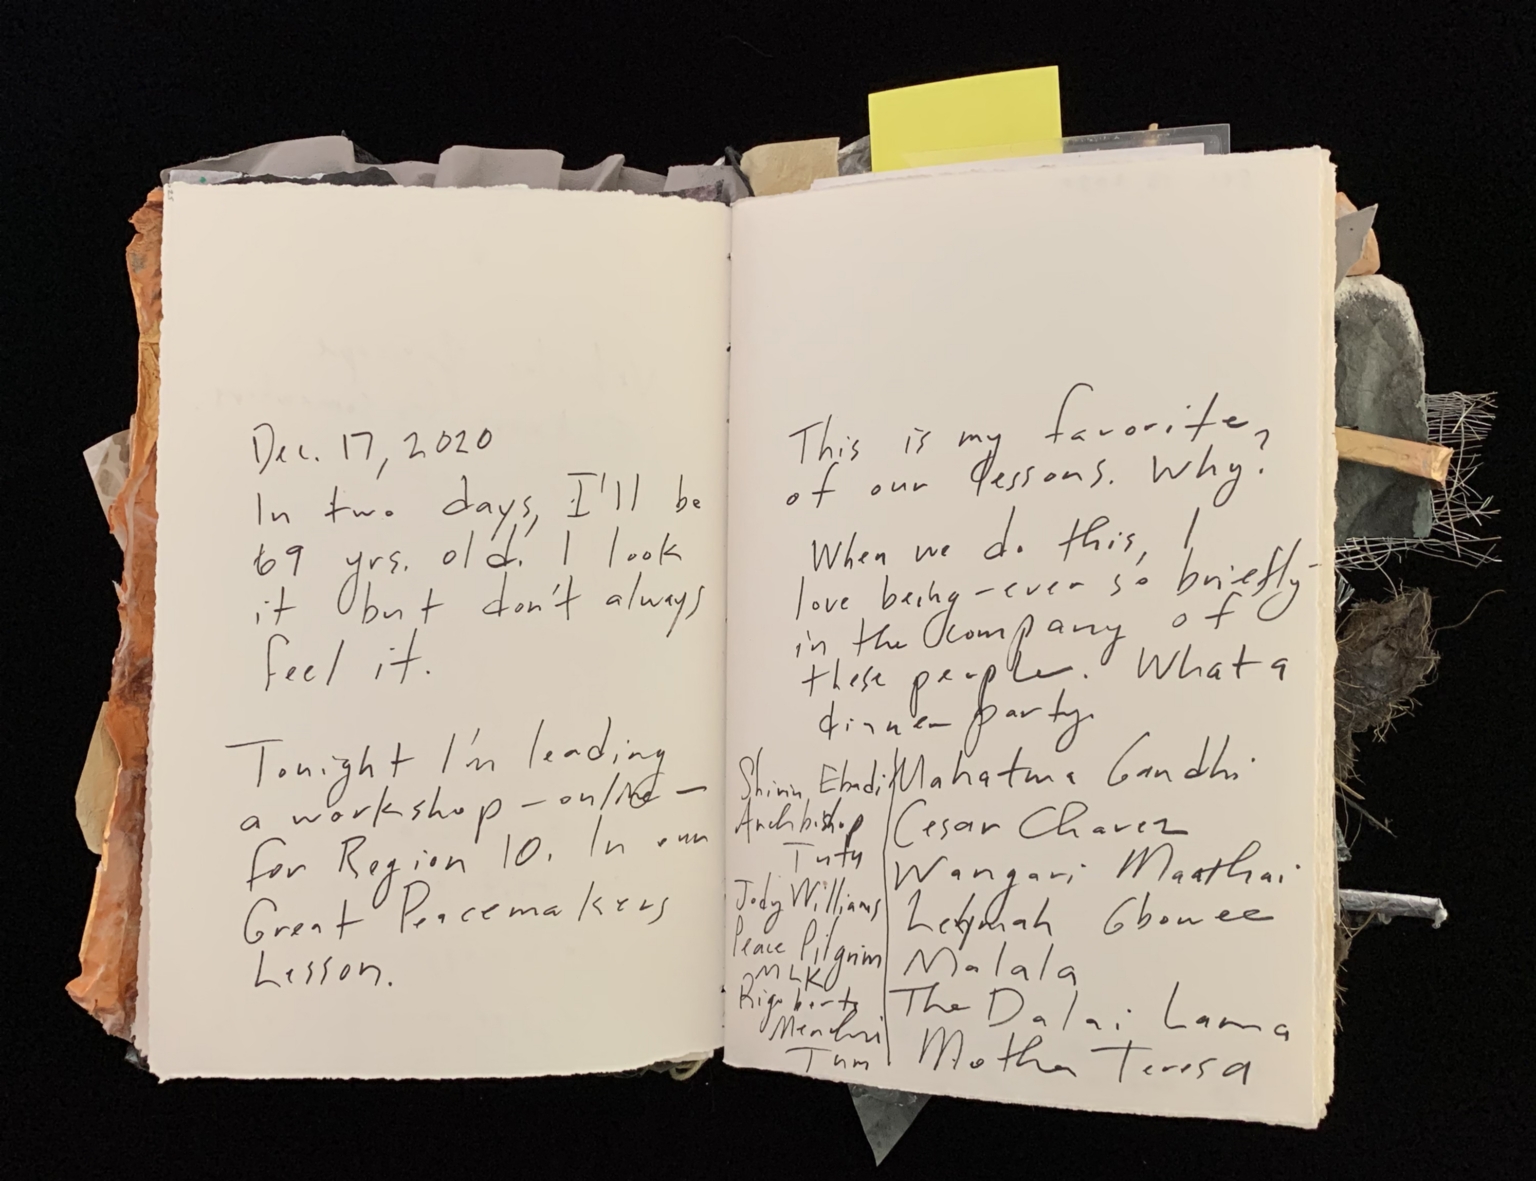 Dec. 17, 2020
In two days, I'll be
69 yrs. old. I look
it but don't always
feel it.
Tonight I'm leading
a workshop – online –
for Region 10. In our
Great Peacemakers
Lesson.
This is my favorite
of our lessons. Why?
When we do this, I
love being – ever so briefly –
in the company of
these people. What a
dinner party.
Shirin Ebadi
Archbishop
Tutu
Jody Williams
Peace Pilgrim
MLK
Rigoberta
Menchu
Tum
Mahatma Gandhi
Cesar Chavez
Wangari Maathai
Leymah Gbowee
Malala
The Dalai Lama
Mother Teresa